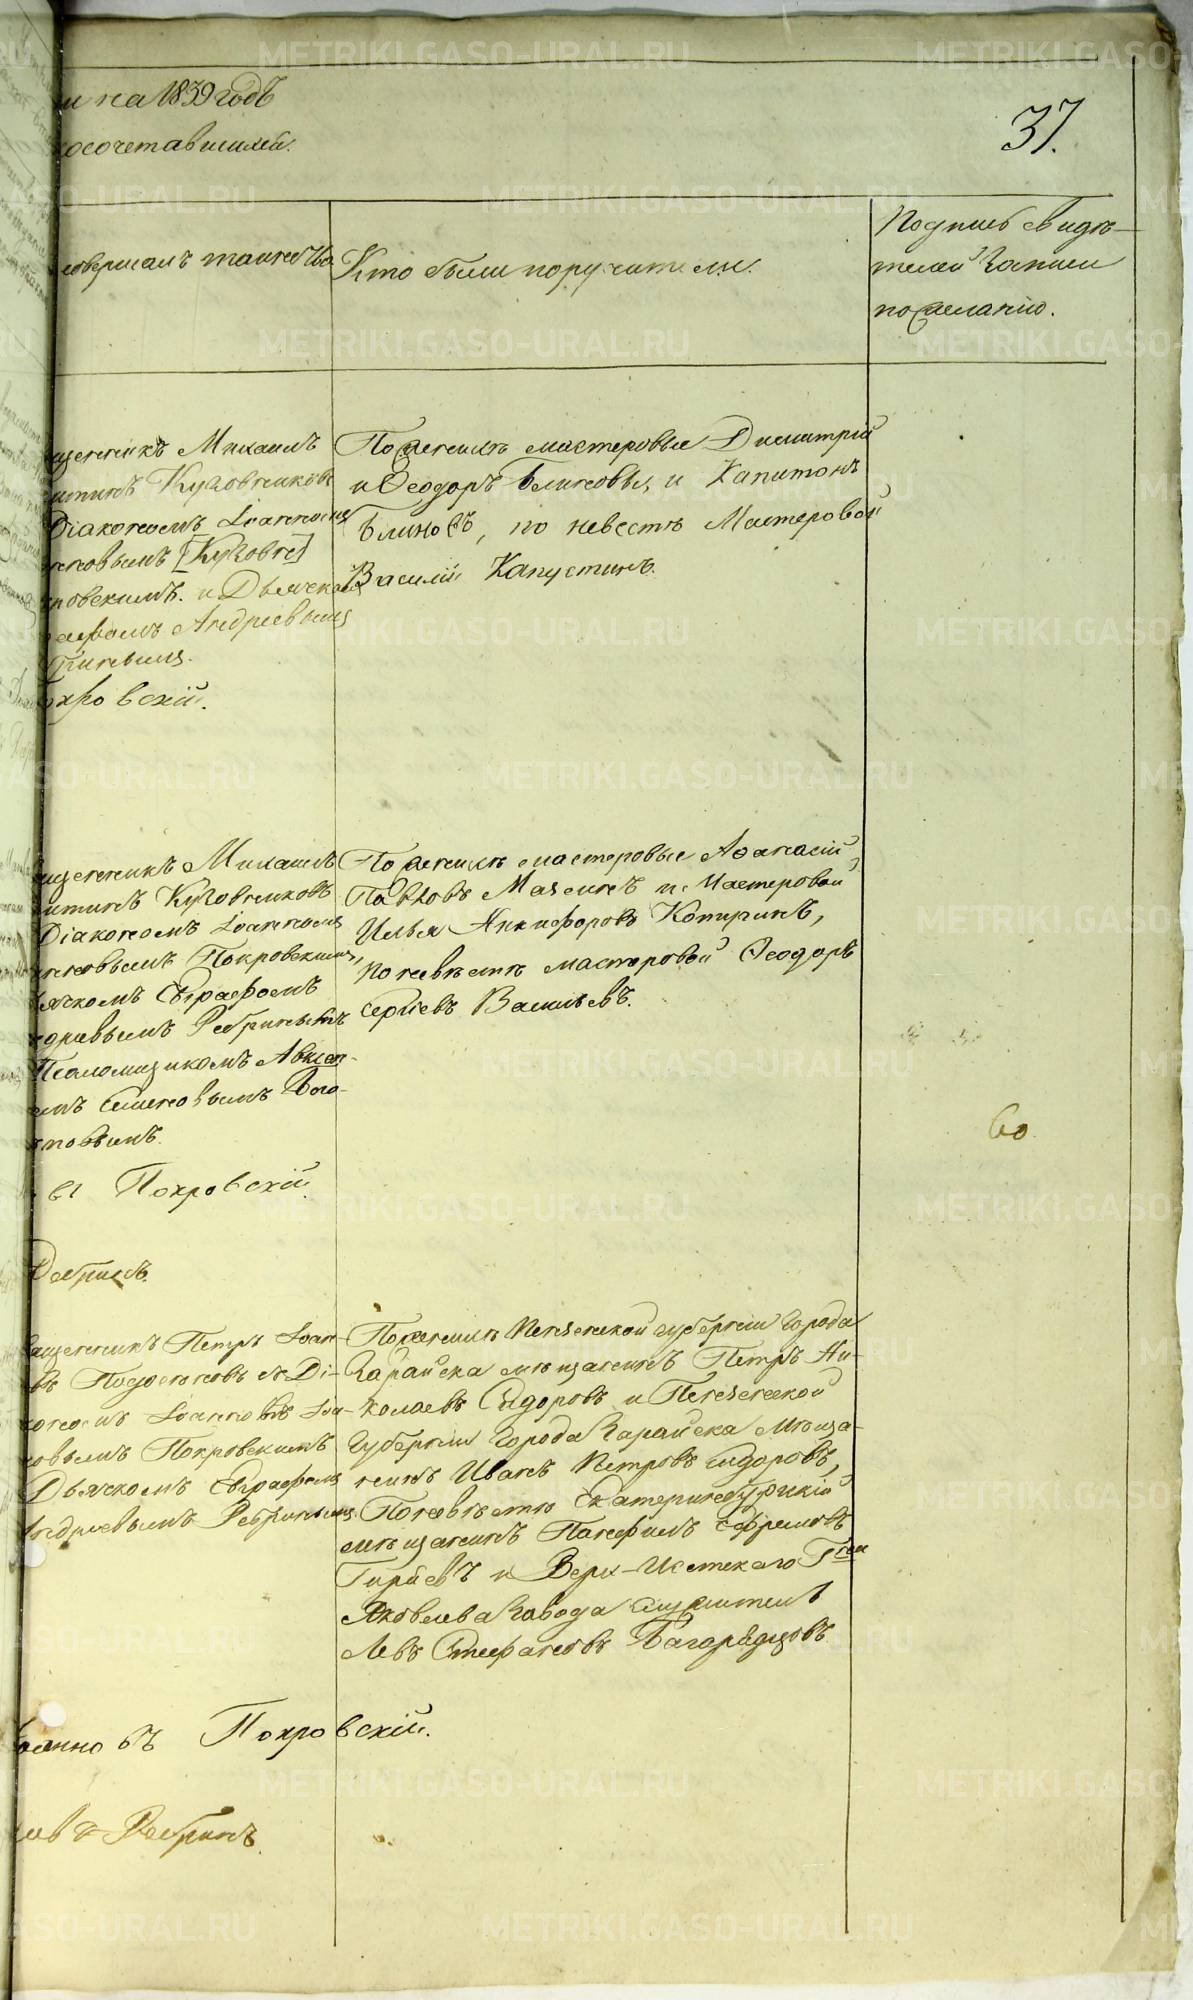 и на 1839 годъ
косочетавшихся.
37.
совершалъ таинство
Кто были поручители.
Подпись свидѣ-
телей записи
по желанію.
щенникъ Михаилъ
Кузовниковъ
Діакономъ Іоанном
новымъ [Кузовн]
кровскимъ. и Дьячком
графомъ Андріевымъ
Покровскій.
По женихѣ мастеровые Димитрій
и Ѳеодоръ Блиновы, и Капитонъ
Блиновъ, по невестѣ Мастеровой
Василій Капустинъ.
щенникъ Михаилъ
Кузовниковъ
Діакономъ Іоанном
нновымъ Покровскимъ,
ячкомъ Евграфомъ
ндріевымъ Ребринымъ
Псаломщикомъ Авксен-
емъ Симеоновымъ Бого-
въ Покровскій
Ребринъ.
По женихѣ мастеровые Аѳанасій
Павловъ Мазинъ и Мастеровой
Илья Никифоровъ Котугинъ,
по невѣстѣ мастеровой Ѳеодоръ
Сергіевъ Васильевъ.
60
ященникъ Петръ Іоан-
въ Подосеновъ съ Ді-
кономъ Іоанномъ Іоа-
новымъ Покровскимъ
Дьячкомъ Евграфом
Андріевымъ Ребринымъ
По женихѣ Пензенской губерніи города
Зарайска мѣщанинъ Петръ Ни-
колаевъ Сидоровъ и Пензенской
Губерніи города Зарайска Мѣща-
нинъ Иванъ Петровъ Сидоровъ,
По невѣстѣ Екатеринбургскій
мѣщанинъ Панфилъ Ефремовъ
и Верх-Исетскаго Гна
Яковлева завода Служитель
Левъ Стефановъ
Іоанновъ Покровскій.
Ребринъ.
METRIKI.GASO-URAL.RU